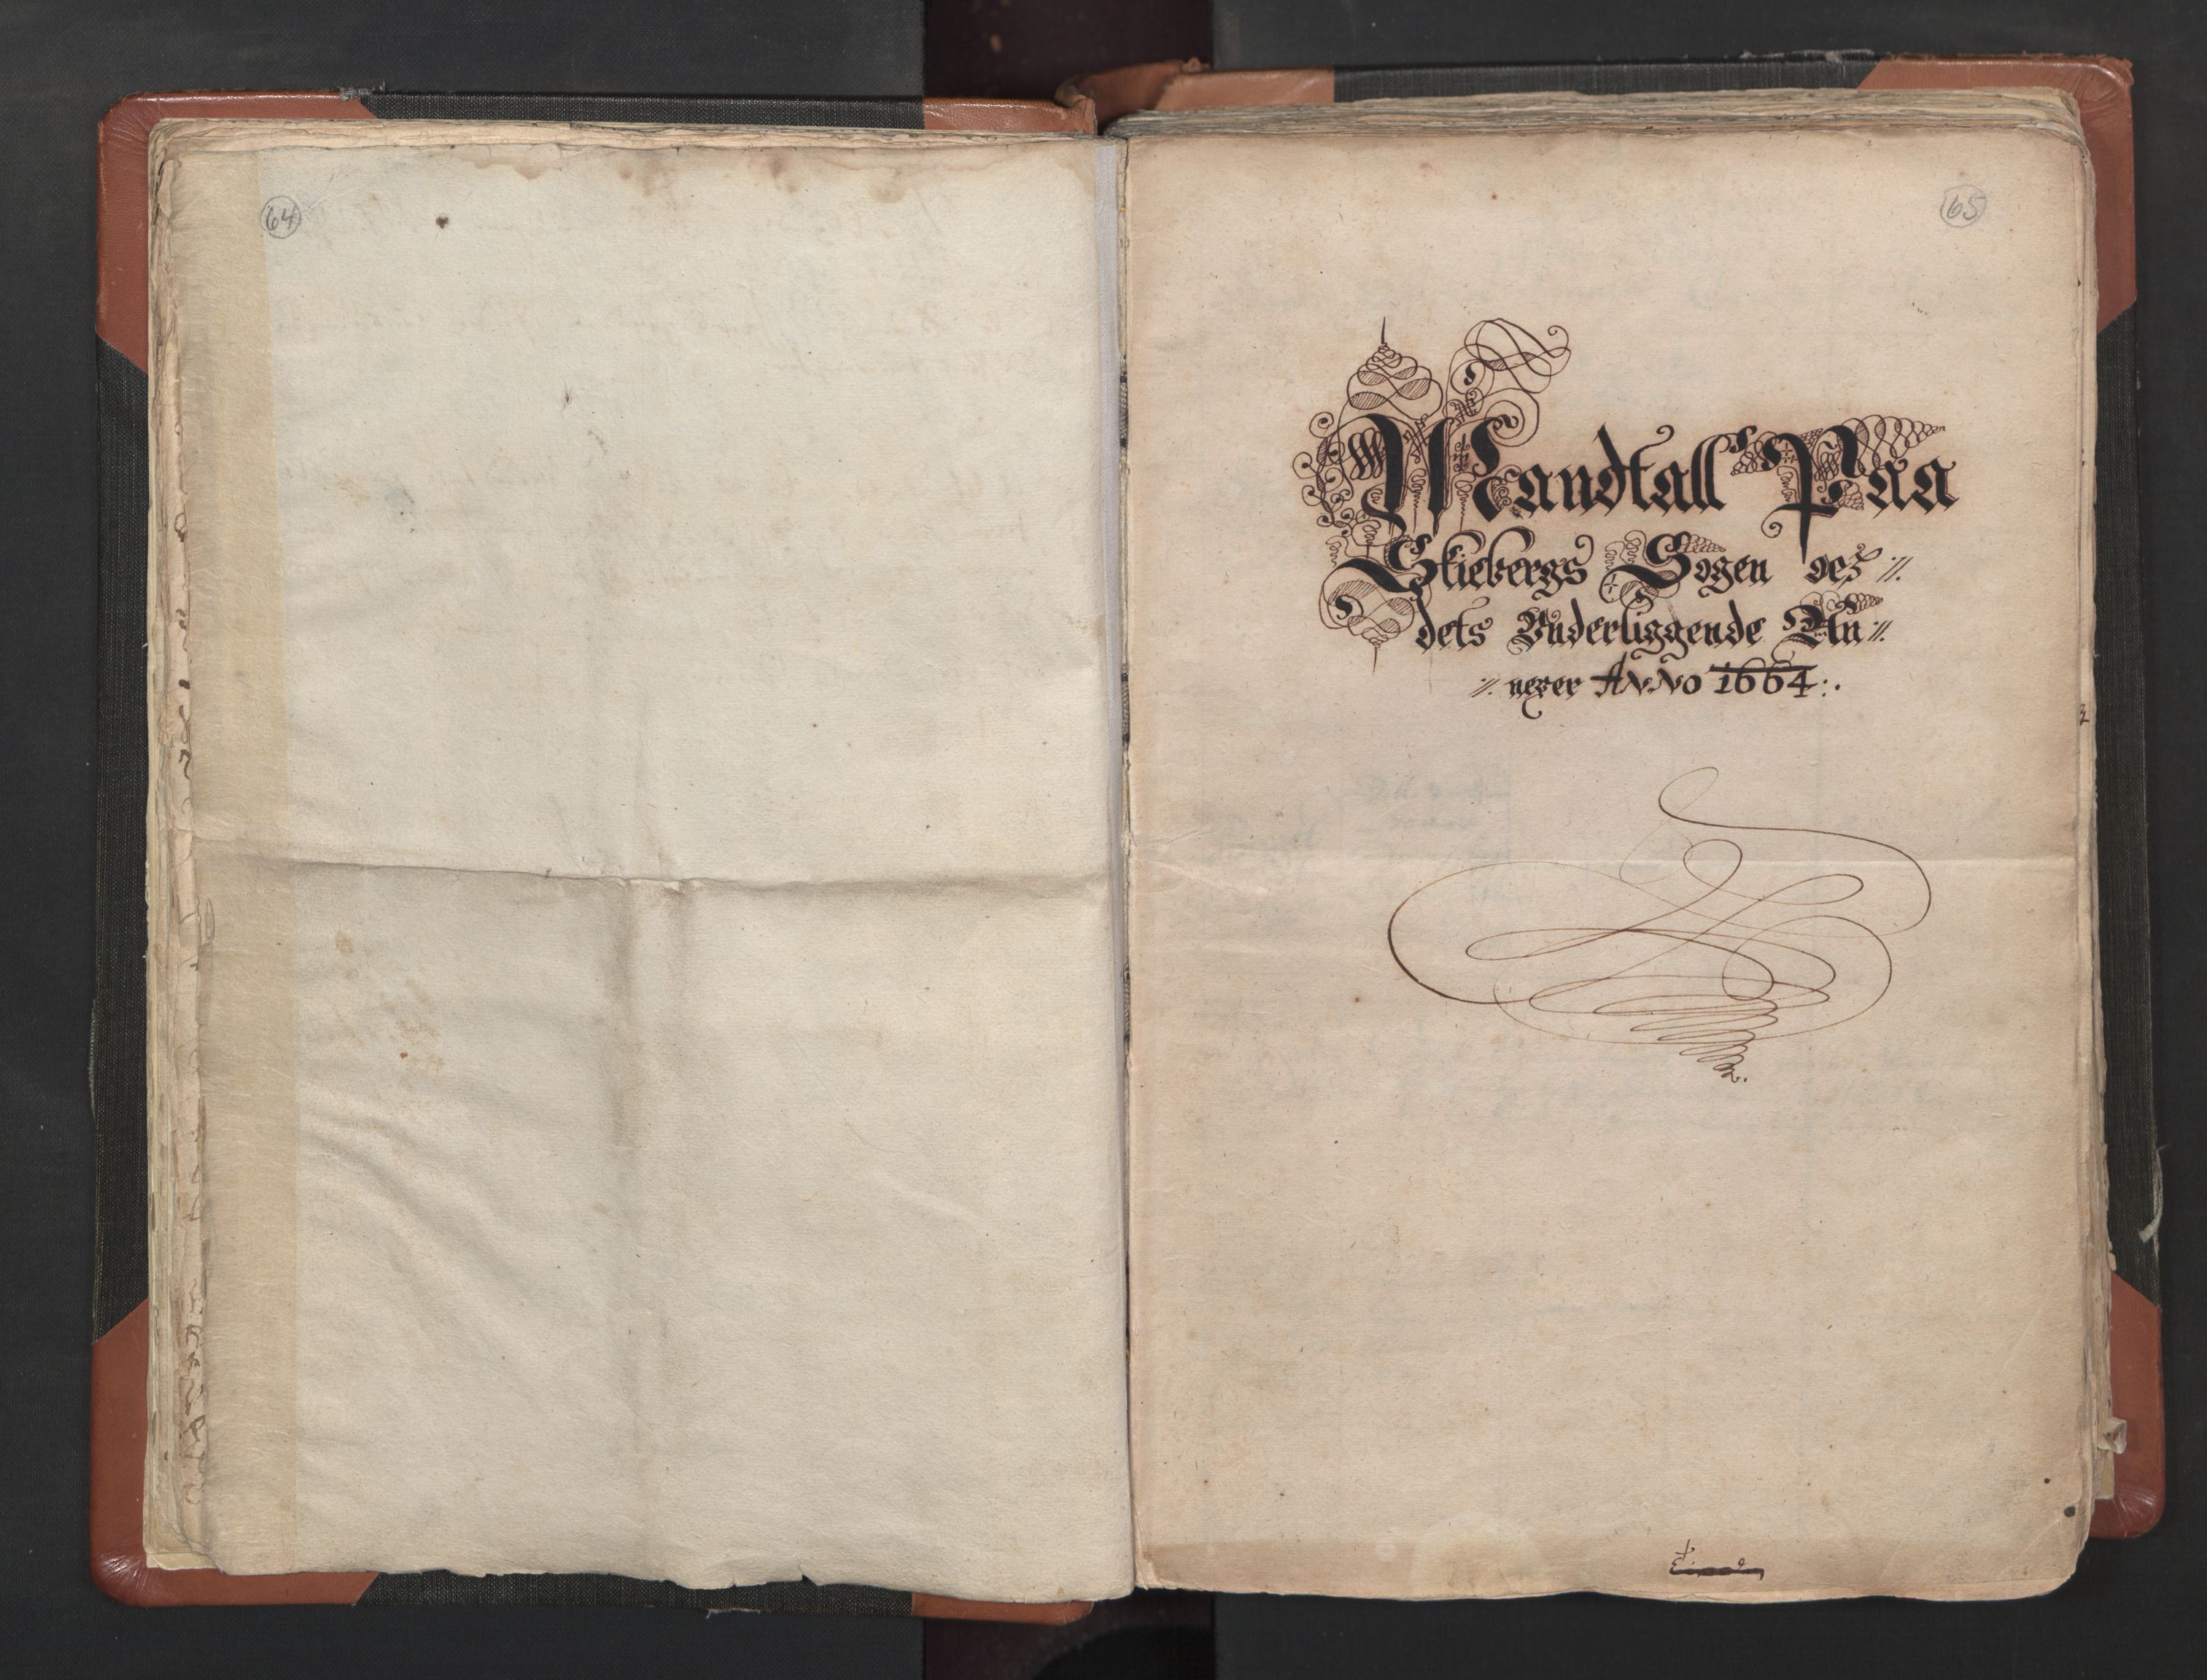 64
65
Mandtall Paa
Skiebergs Sogen oc
dets Vnderliggende An
nexer Anno 1664